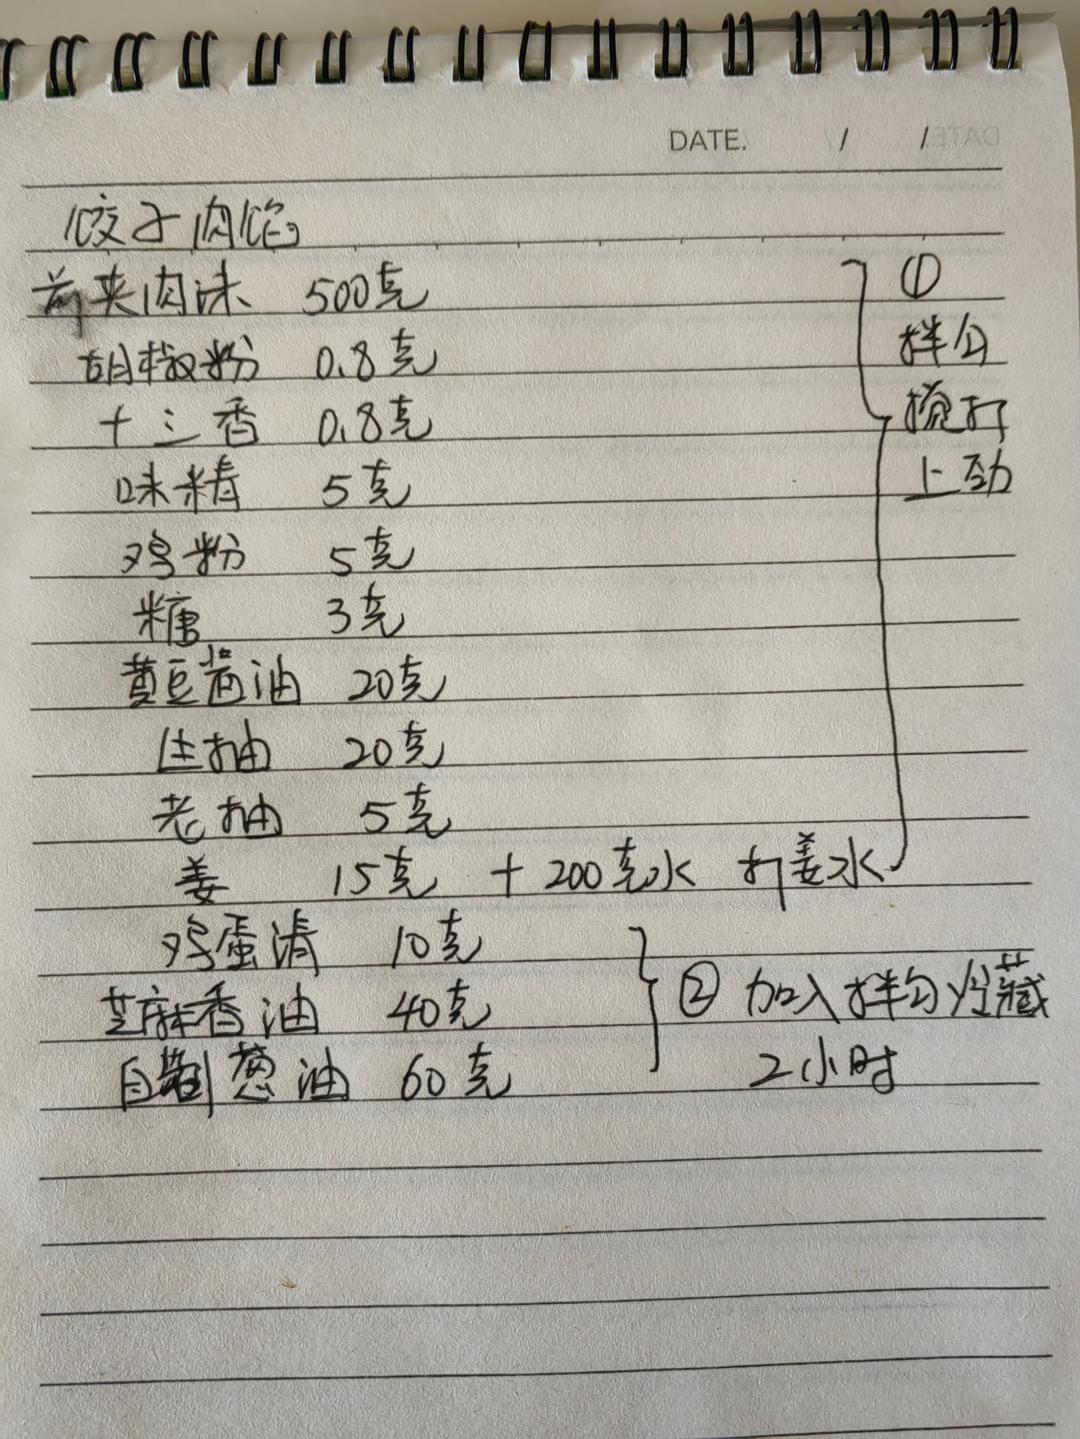 DATE. / /
饺子肉馅
前夹肉沫 500克
胡椒粉 0.8克
十三香 0.8克
味精 5克
鸡粉 5克
糖 3克
黄豆酱油 20克
生抽 20克
老抽 5克
姜 15克 + 200克水 打姜水
①
拌匀
搅打
上劲
鸡蛋清 10克
芝麻香油 40克
自制葱油 60克
② 加入拌匀冷藏
2小时